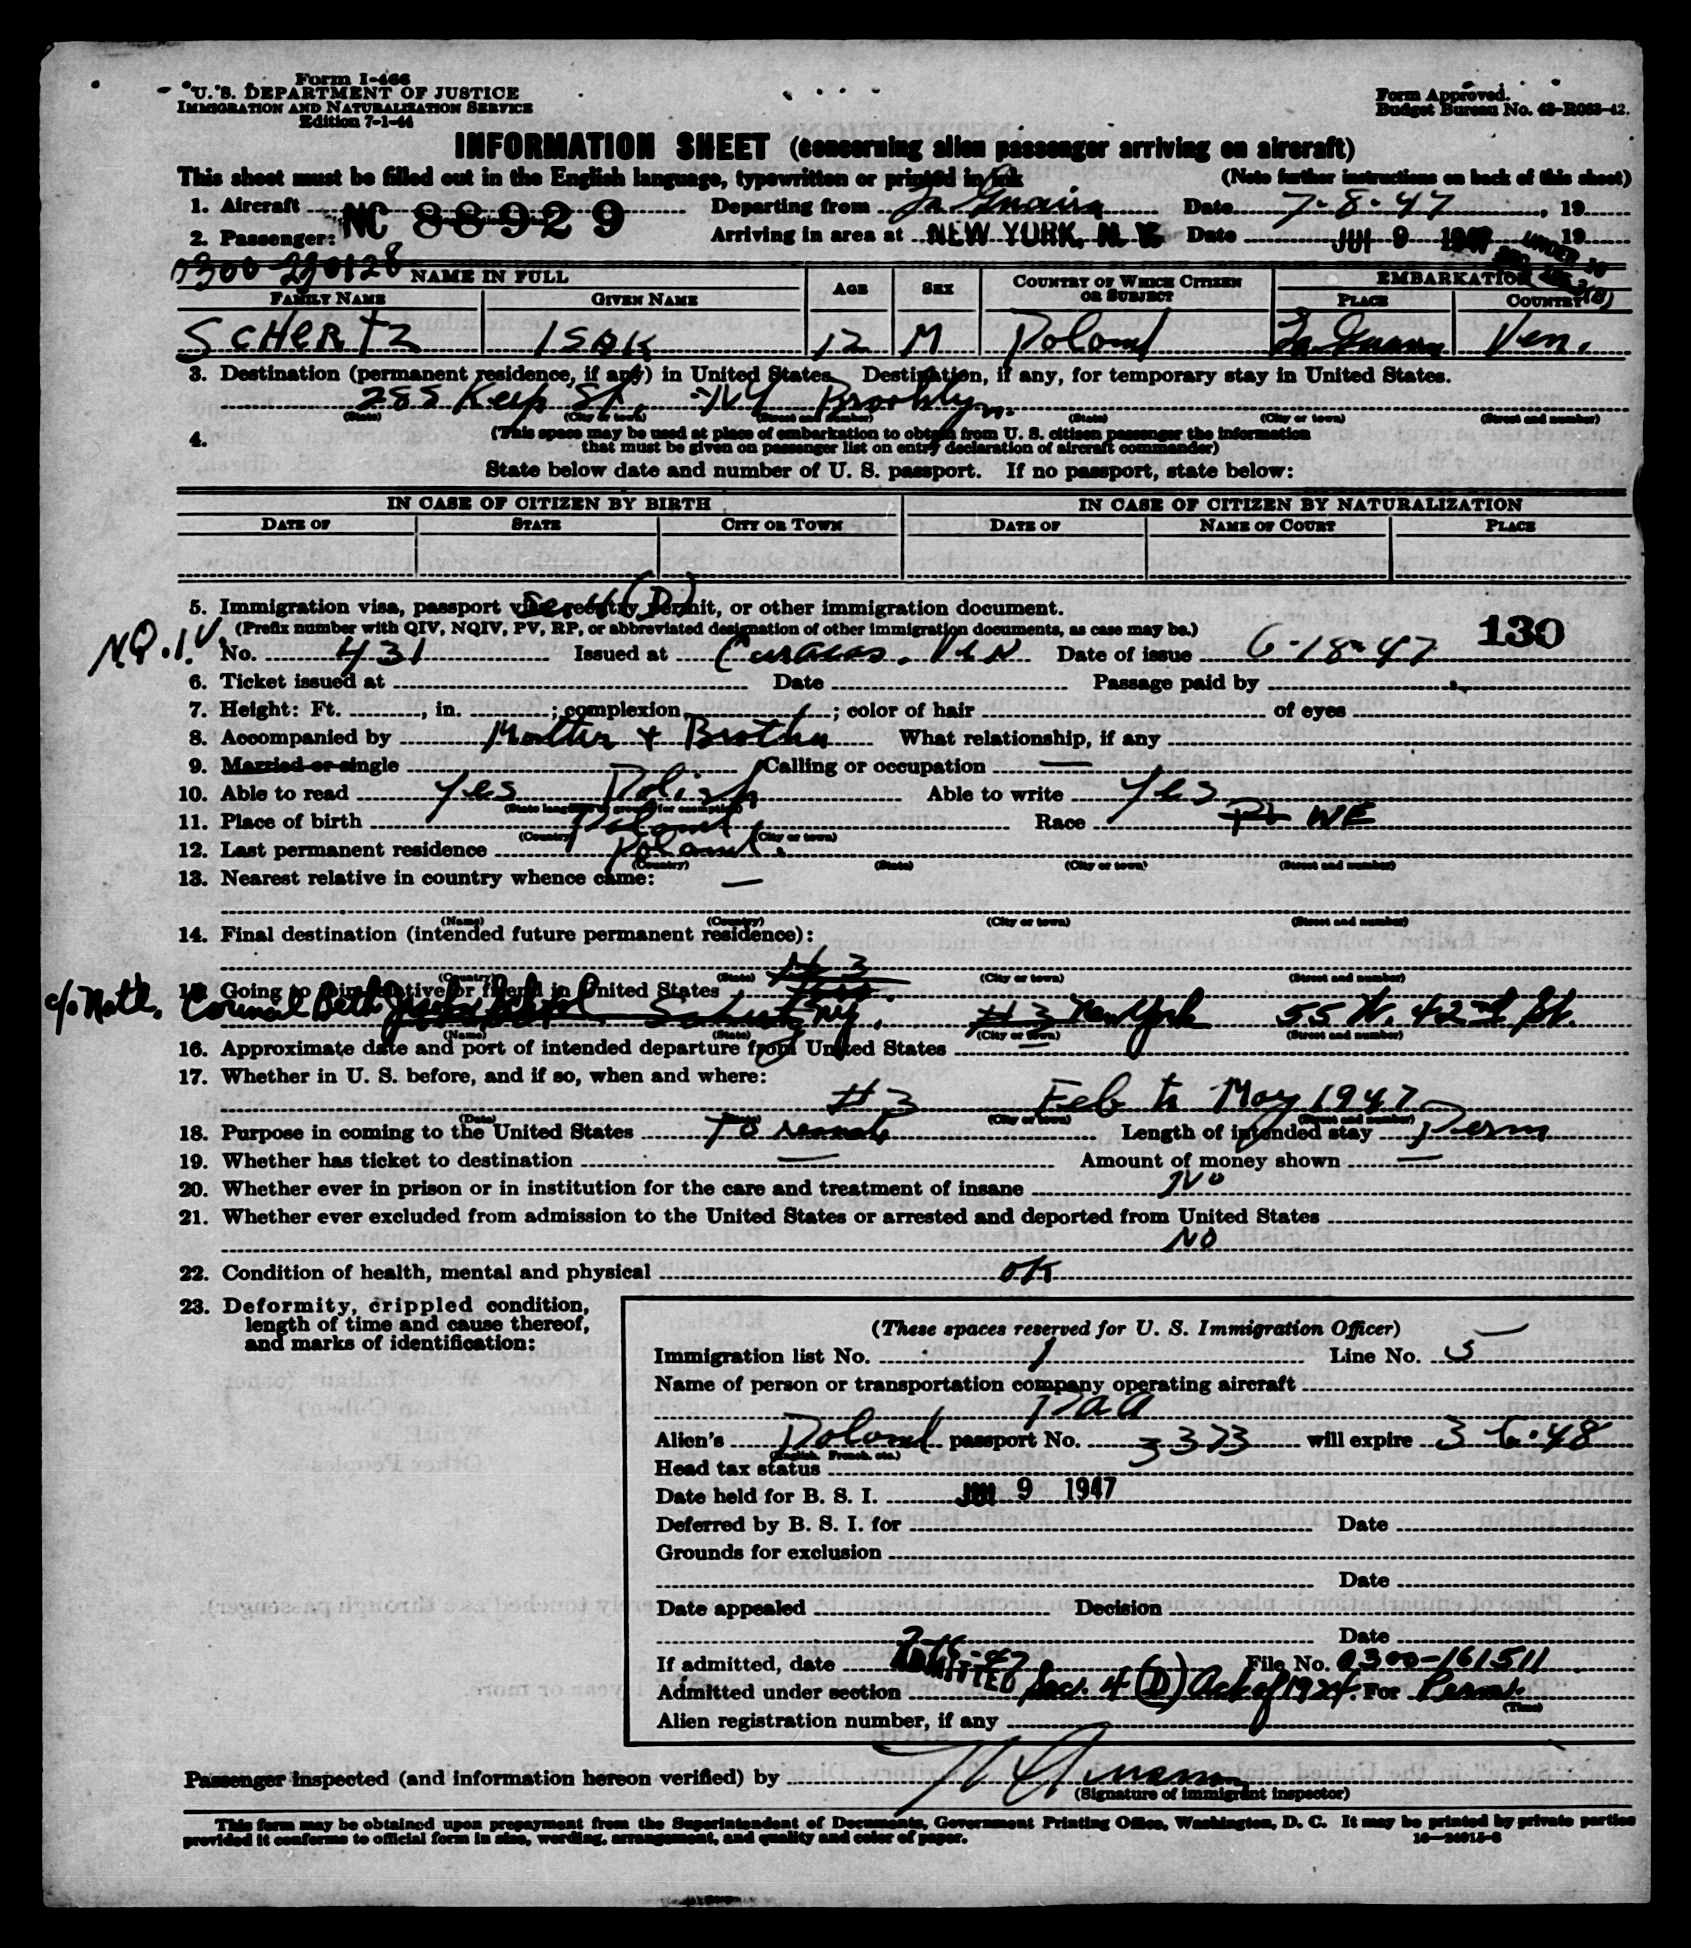 Form I-466
U. S. DEPARTMENT OF JUSTICE
IMMIGRATION AND NATURALIZATION SERVICE
Edition 7-1-44
Form Approved.
Budget Bureau No. 43-R063-42.
INFORMATION SHEET (concerning alien passenger arriving on aircraft)
This sheet must be filled out in the English language, typewritten or printed in ink (Note further instructions on back of this sheet)
1. Aircraft NC 88929 Departing from La Guaira Date 7-8-47, 19
2. Passenger: Arriving in area at NEW YORK, N. Y. Date JUL 9 1947 19
UNDER 16
0300-230128 NAME IN FULL AGE SEX COUNTRY OF WHICH CITIZEN OR SUBJECT EMBARKATION
FAMILY NAME GIVEN NAME PLACE COUNTRY
SCHERTZ ISAK 12 M Poland La Guaira Ven.
3. Destination (permanent residence, if any) in United States. Destination, if any, for temporary stay in United States.
285 Keap St. NY Brooklyn
(State) (City or town) (Street and number) (State) (City or town) (Street and number)
4. (This space may be used at place of embarkation to obtain from U. S. citizen passenger the information
that must be given on passenger list on entry declaration of aircraft commander)
State below date and number of U. S. passport. If no passport, state below:
IN CASE OF CITIZEN BY BIRTH IN CASE OF CITIZEN BY NATURALIZATION
DATE OF STATE CITY OR TOWN DATE OF NAME OF COURT PLACE
5. Immigration visa, passport visa, reentry permit, or other immigration document.
Sec 4(D)
(Prefix number with QIV, NQIV, PV, RP, or abbreviated designation of other immigration documents, as case may be.) 130
N.Q.I.V. No. 431 Issued at Caracas, Ven Date of issue 6-18-47
6. Ticket issued at Date Passage paid by
7. Height: Ft. , in. ; complexion ; color of hair of eyes
8. Accompanied by Mother + Brother What relationship, if any
9. Married or single Calling or occupation —
10. Able to read Yes Polish Able to write Yes
(State language or ground for exemption)
11. Place of birth Poland Race Po WE
(Country) (City or town)
12. Last permanent residence Poland.
(Country) (State) (City or town) (Street and number)
13. Nearest relative in country whence came: —
(Name) (Country) (City or town) (Street and number)
14. Final destination (intended future permanent residence):
# 3
(Country) (State) (City or town) (Street and number)
15. Going to join relative or friend in United States
c/o Natl. Council Beth Jacob School N.Y. # 3 New York 55 W. 42nd St.
(Name) (State) (City or town) (Street and number)
16. Approximate date and port of intended departure from United States —
17. Whether in U. S. before, and if so, when and where:
# 3 Feb to May 1947
(Date) (State) (City or town) (Street and number)
18. Purpose in coming to the United States To remain Length of intended stay Perm
19. Whether has ticket to destination — Amount of money shown —
20. Whether ever in prison or in institution for the care and treatment of insane No
21. Whether ever excluded from admission to the United States or arrested and deported from United States
NO
22. Condition of health, mental and physical OK
23. Deformity, crippled condition,
length of time and cause thereof,
and marks of identification:
(These spaces reserved for U. S. Immigration Officer)
Immigration list No. 1 Line No. 5
Name of person or transportation company operating aircraft
PAA
Alien's Poland passport No. 3373 will expire 3-6-48
(English, French, etc.)
Head tax status
Date held for B. S. I. JUL 9 1947
Deferred by B. S. I. for Date
Grounds for exclusion
Date
Date appealed Decision
Date
If admitted, date File No. 0300-161511
ADMITTED
Admitted under section Sec. 4 (D) Act of 1924. For Perm.
(Time)
Alien registration number, if any
Passenger inspected (and information hereon verified) by
(Signature of immigrant inspector)
This form may be obtained upon prepayment from the Superintendent of Documents, Government Printing Office, Washington, D. C. It may be printed by private parties
provided it conforms to official form in size, wording, arrangement, and quality and color of paper. 16—24015-3